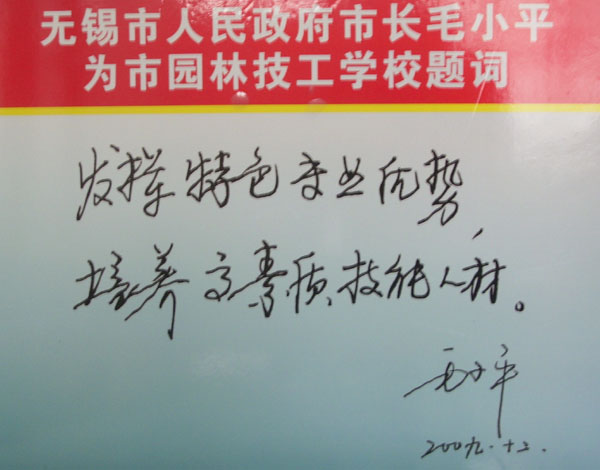 无锡市人民政府市长毛小平
为市园林技工学校题词
发挥特色专业优势,
培养高素质技能人材。
毛小平
2009.十二.